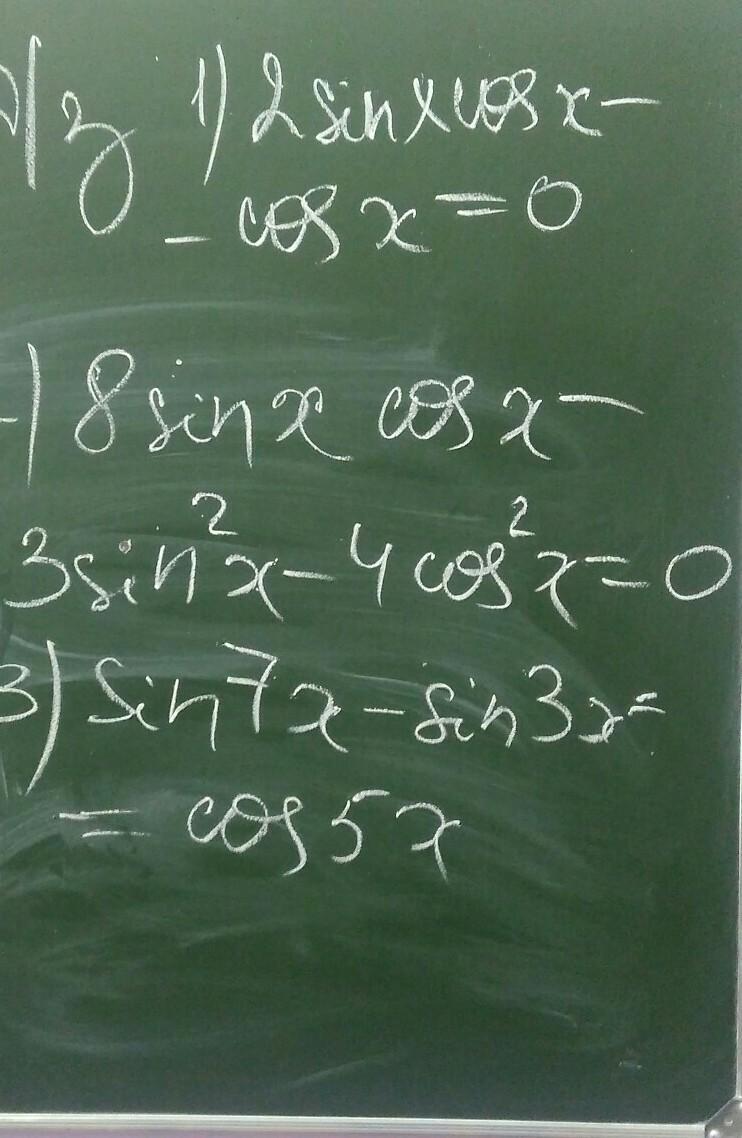 д/з 1) 2 sin x cos x –
– cos x = 0
2) 8 sin x cos x –
3 sin²x – 4 cos²x = 0
3) sin 7x – sin 3x =
= cos 5x